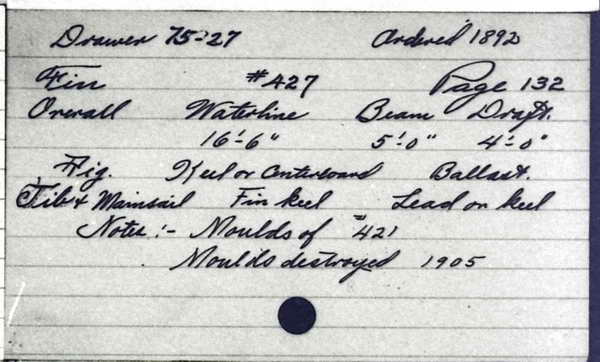 Drawer 75-27 Ordered 1892
Fin #427 Page 132
Overall Waterline Beam Draft.
16'-6" 5'-0" 4'-0"
Rig. Keel or Centerboard Ballast.
Jib & Mainsail Fin keel Lead on keel
Notes:- Moulds of #421
Moulds destroyed 1905